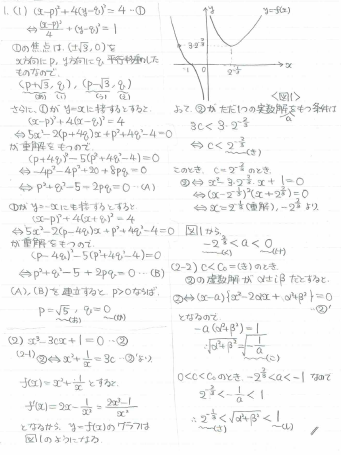 1. (1) (x-p)²+4(y-q)²=4 …①
⇔ (x-p)²/4 + (y-q)²=1
①の焦点は、(±√3, 0)を
x方向にp, y方向にq 平行移動した
ものなので、
(p+√3, q), (p-√3, q)
さらに、①が y=xに接するとすると、
(x-p)²+4(x-q)²=4
⇔ 5x²-2(p+4q)x+p²+4q²-4=0
が重解をもつので
(p+4q)²-5(p²+4q²-4)=0
⇔ -4p²-4q²+20+8pq=0
⇔ p²+q²-5-2pq=0 …(A)
①が y=-xにも接するとすると、
(x-p)²+4(x+q)²=4
⇔ 5x²-2(p-4q)x+p²+4q²-4=0
が重解をもつので、
(p-4q)²-5(p²+4q²-4)=0
⇔ p²+q²-5+2pq=0 …(B)
(A), (B)を連立すると p>0ならば、
p=√5, q=0
(お) (か)
(2) x³-3cx+1=0 …②
(2-1) ②⇔ x²+1/x=3c …②'より
f(x)=x²+1/x とすると、
f'(x)=2x-1/x²=(2x³-1)/x²
となるから y=f(x)のグラフは
図1のようになる
y
y=f(x)
-1
0
x
<図1>
よって、②がただ1つの実数解をもつ条件は
a
⇔ c<2^(-2/3)
(き)
このとき、c=2^(-2/3)のとき、
②⇔ x³-3·2^(-2/3)·x+1=0
図1から、
-2^(2/3)<a<0
(く) (け)
(2-2) c<c₀=(き)のとき、
②の虚数解が α±iβ だとすると、
②⇔(x-a){x²-2αx+α²+β²}=0
…②'
となるので
-a(α²+β²)=1
∴√(α²+β²)=√(-1/a)
(こ)
2^(-2/3)<-1/a<1
∴ 2^(-1/3)<√(α²+β²)<1
(さ) (し)